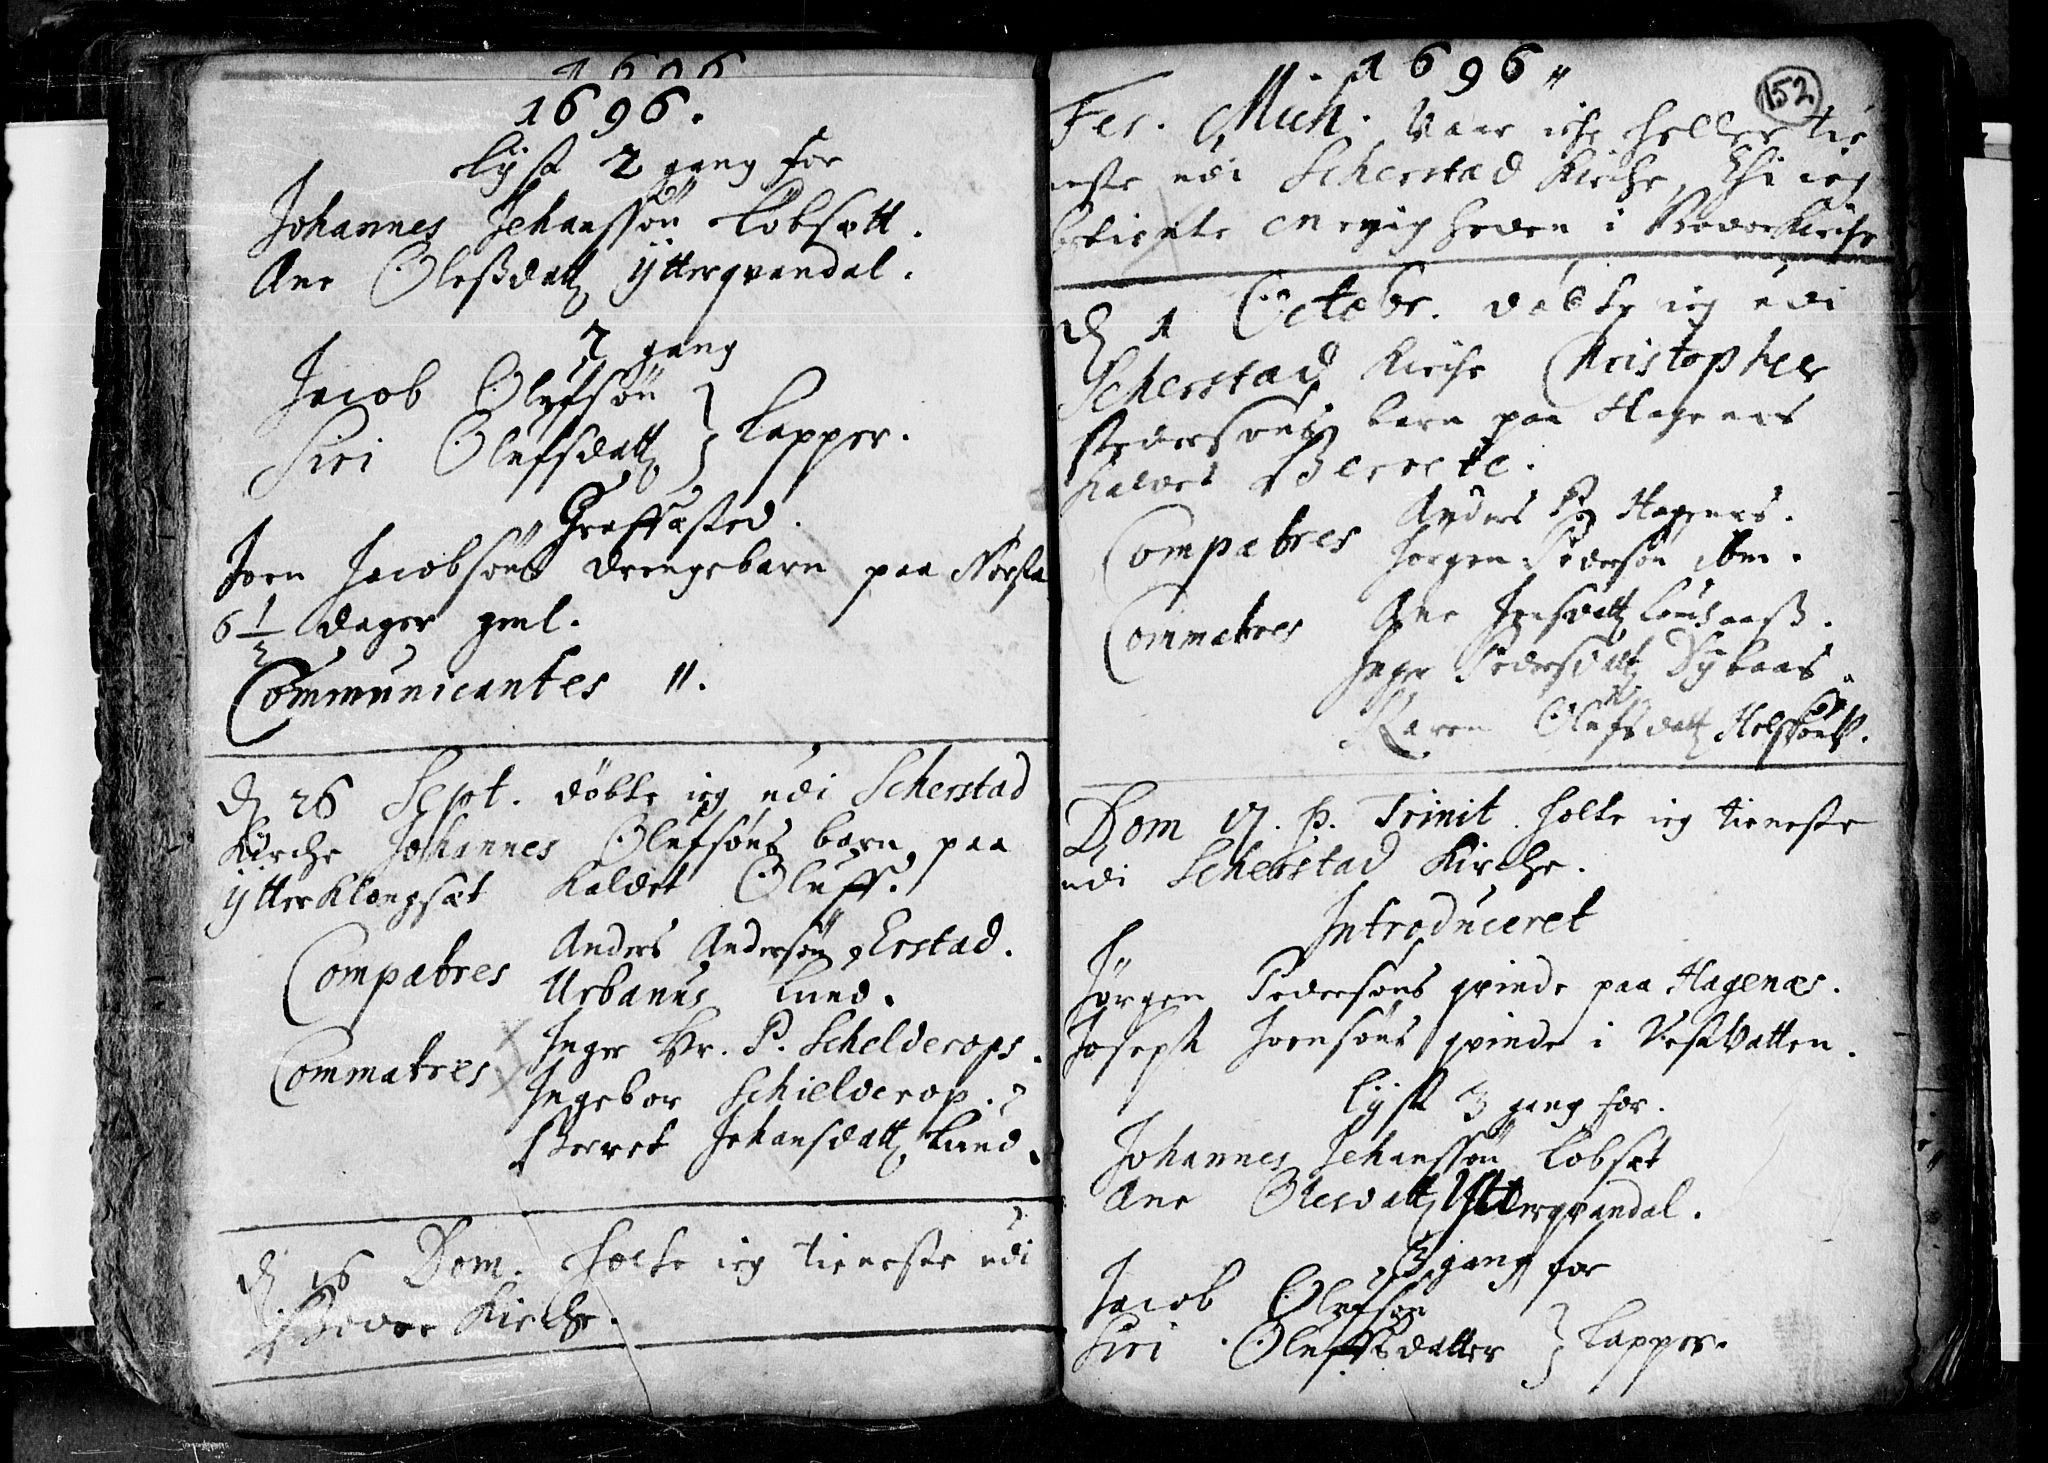 1696.
lyst 2 gang for
Johannes Jehanssøn Løbsætt.
Ane Olesdatt Yttergrandal.
2 gang
Jacob Oluffsøn
Siri Olufsdatt } Lapper.
Graffæsted.
Joen Jacobsøns drengebarn paa
6 1/2 dager gml.
Communicantes 11.
D 26 Sept. døbte ieg udi Scherstad
Kirche Johannes Olufsøns barn paa
Ytterklongsæt kaldet Oluff.
Compatres Anders Andersøn Erstad.
Urbanus Lund.
Commatres Inger Hr. P. Schelderops.
Ingebor Schielderop.
Berret Johansdatt Lund.
D 16 Dom. holte ieg tieneste udi
Bodøe Kirche.
1696
152
Fer. Mich. Vaar iche heller tie
neste udi Scherstad Kirche, thi ieg
betiente menigheden i Bodøe Kirche
D 1 Octobr. døbte ieg udi
Scherstad Kirche Christopher
Pedersøns barn paa Hagenæs
kaldet Berrete.
Compatres Anders P. Hagenæs.
Jørgen Pedersøn ibm.
Commatres Ane Jensdatt
Inger Pedersdatt
Karen Olufsdatt
Dom 17. p. Trinit. holte ieg tieneste
udi Scherstad Kirche.
Introduceret
Jørgen Pedersøns qvinde paa Hagenæs.
Joseph Joensøns qvinde i Vestvatten.
lyst 3 gang for.
Johannes Jehanssøn Løbsæt
Ane Olesdatt Yttergrandal.
3 gang for
Jacob Olufsøn
Siri Oluffsdatter } Lapper.